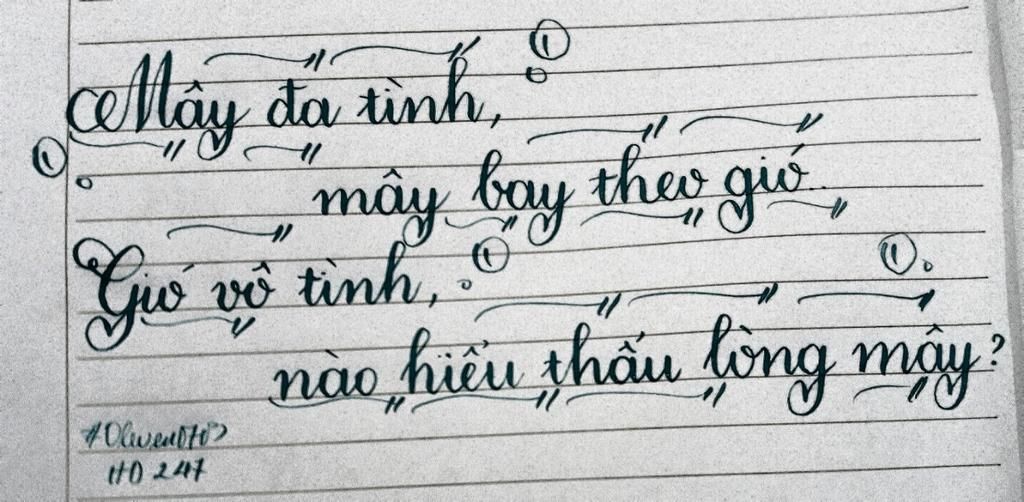 Mây đa tình,
mây bay theo gió..
Gió vô tình,
nào hiểu thấu lòng mây?
HD 247